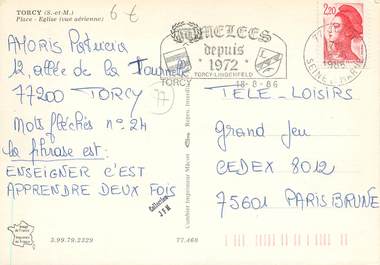 TORCY (S.-et-M.)
Place - Eglise (vue aérienne)
6 €
AMORIS Patricia
12, allée de la Tournelle
77200 TORCY
Mots fléchés n° 24
la phrase est:
ENSEIGNER C'EST
APPRENDRE DEUX FOIS
77
JUMELEES
depuis
1972
TORCY-LINGENFELD
TORCY
18-8-86
2,20
1986
SEINE
TELE-LOISIRS
Grand Jeu
CEDEX 8012
75601 PARIS BRUNE
Combier Imprimeur Mâcon
Collection
JPM
Image
de France
3.99.79.2329
77.468